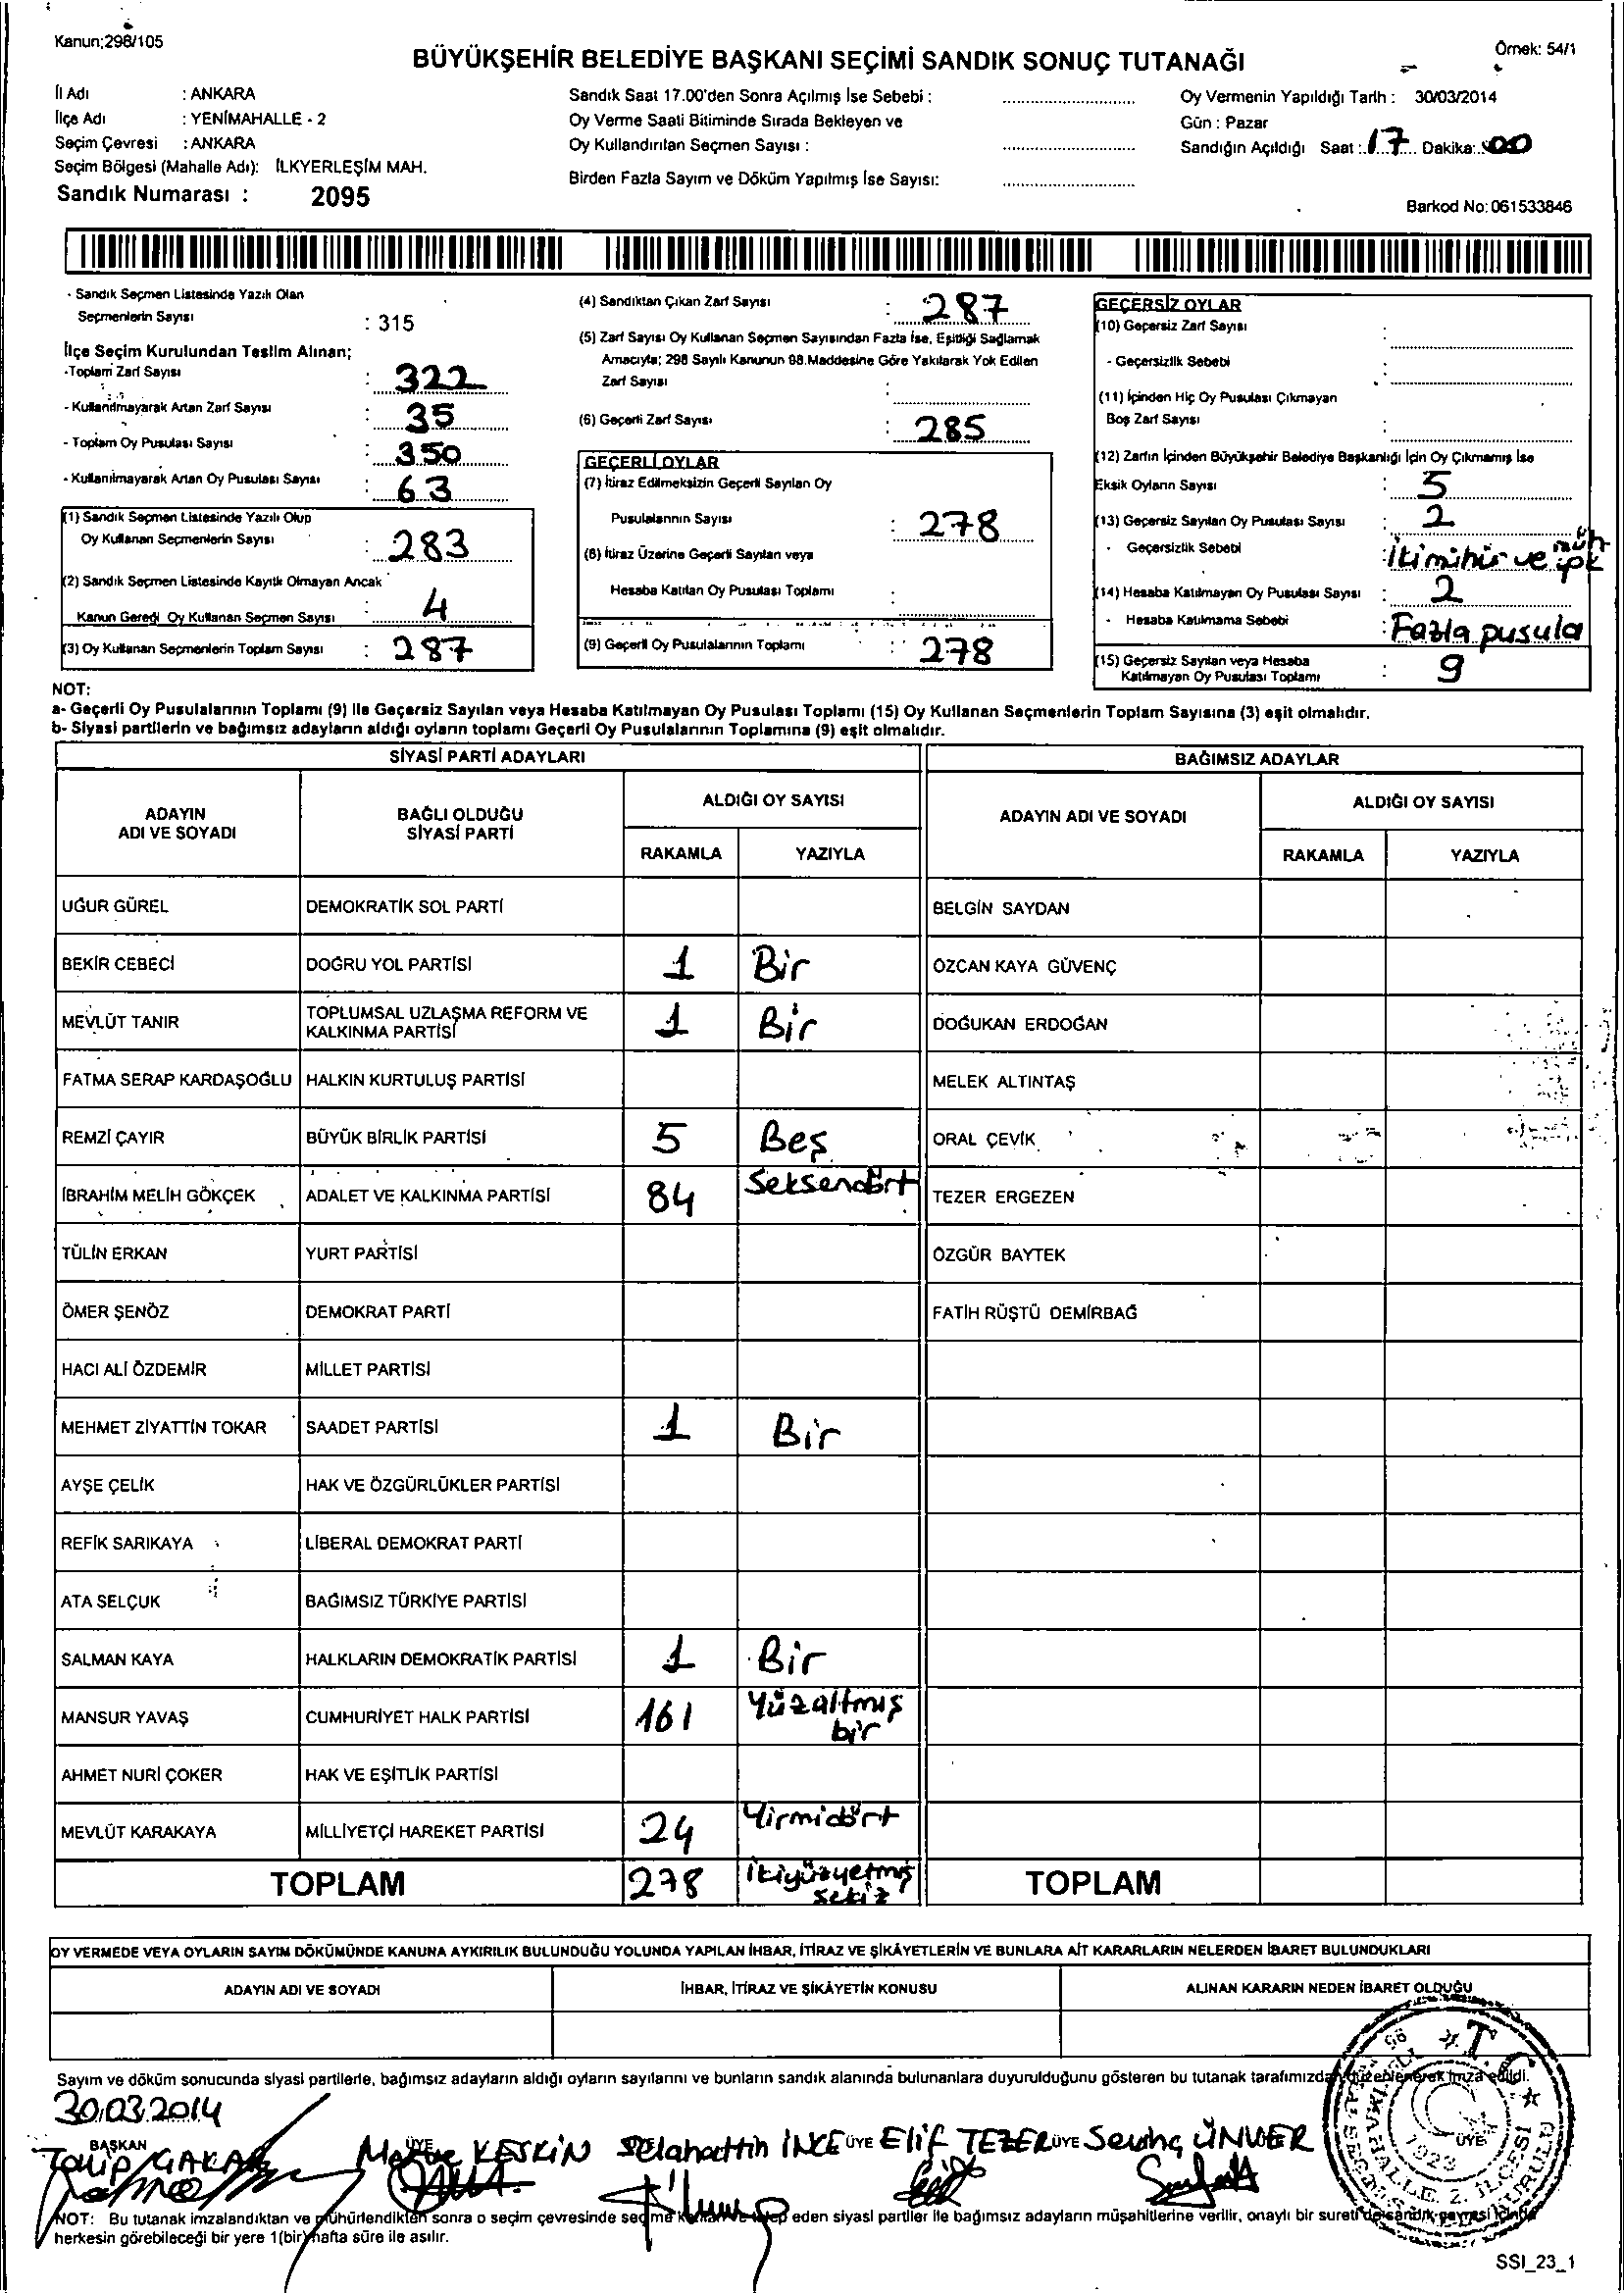 Kanun;298/105
Örnek: 54/1
BÜYÜKŞEHİR BELEDİYE BAŞKANI SEÇİMİ SANDIK SONUÇ TUTANAĞI
İl Adı : ANKARA
İlçe Adı : YENİMAHALLE - 2
Seçim Çevresi : ANKARA
Seçim Bölgesi (Mahalle Adı): İLKYERLEŞİM MAH.
Sandık Numarası : 2095
Sandık Saat 17.00'den Sonra Açılmış İse Sebebi :
Oy Verme Saati Bitiminde Sırada Bekleyen ve
Oy Kullandırılan Seçmen Sayısı :
Birden Fazla Sayım ve Döküm Yapılmış İse Sayısı:
Oy Vermenin Yapıldığı Tarih : 30/03/2014
Gün : Pazar
Sandığın Açıldığı Saat : 17 Dakika: 00
Barkod No: 061533846
- Sandık Seçmen Listesinde Yazılı Olan
Seçmenlerin Sayısı : 315
İlçe Seçim Kurulundan Teslim Alınan;
-Toplam Zarf Sayısı : 322
- Kullanılmayarak Artan Zarf Sayısı : 35
- Toplam Oy Pusulası Sayısı : 350
- Kullanılmayarak Artan Oy Pusulası Sayısı : 63
(1) Sandık Seçmen Listesinde Yazılı Olup
Oy Kullanan Seçmenlerin Sayısı : 283
(2) Sandık Seçmen Listesinde Kayıtlı Olmayan Ancak
Kanun Gereği Oy Kullanan Seçmen Sayısı : 4
(3) Oy Kullanan Seçmenlerin Toplam Sayısı : 287
(4) Sandıktan Çıkan Zarf Sayısı : 287
(5) Zarf Sayısı Oy Kullanan Seçmen Sayısından Fazla İse, Eşitliği Sağlamak
Amacıyla; 298 Sayılı Kanunun 98.Maddesine Göre Yakılarak Yok Edilen
Zarf Sayısı :
(6) Geçerli Zarf Sayısı : 285
GEÇERLİ OYLAR
(7) İtiraz Edilmeksizin Geçerli Sayılan Oy
Pusulalarının Sayısı : 278
(8) İtiraz Üzerine Geçerli Sayılan veya
Hesaba Katılan Oy Pusulası Toplamı :
(9) Geçerli Oy Pusulalarının Toplamı : 278
GEÇERSİZ OYLAR
(10) Geçersiz Zarf Sayısı :
- Geçersizlik Sebebi :
(11) İçinden Hiç Oy Pusulası Çıkmayan
Boş Zarf Sayısı :
(12) Zarfın İçinden Büyükşehir Belediye Başkanlığı İçin Oy Çıkmamış İse
Eksik Oyların Sayısı : 5
(13) Geçersiz Sayılan Oy Pusulası Sayısı : 2
- Geçersizlik Sebebi : İki mühür ve
(14) Hesaba Katılmayan Oy Pusulası Sayısı : 2
- Hesaba Katılmama Sebebi : Fazla pusula
(15) Geçersiz Sayılan veya Hesaba
Katılmayan Oy Pusulası Toplamı : 9
NOT:
a- Geçerli Oy Pusulalarının Toplamı (9) ile Geçersiz Sayılan veya Hesaba Katılmayan Oy Pusulası Toplamı (15) Oy Kullanan Seçmenlerin Toplam Sayısına (3) eşit olmalıdır.
b- Siyasi partilerin ve bağımsız adayların aldığı oyların toplamı Geçerli Oy Pusulalarının Toplamına (9) eşit olmalıdır.
SİYASİ PARTİ ADAYLARI BAĞIMSIZ ADAYLAR
ADAYIN ADI VE SOYADI
BAĞLI OLDUĞU SİYASİ PARTİ
ALDIĞI OY SAYISI
RAKAMLA YAZIYLA
ADAYIN ADI VE SOYADI
ALDIĞI OY SAYISI
RAKAMLA YAZIYLA
UĞUR GÜREL DEMOKRATİK SOL PARTİ BELGİN SAYDAN
BEKİR CEBECİ DOĞRU YOL PARTİSİ 1 Bir ÖZCAN KAYA GÜVENÇ
MEVLÜT TANIR TOPLUMSAL UZLAŞMA REFORM VE KALKINMA PARTİSİ 1 Bir DOĞUKAN ERDOĞAN
FATMA SERAP KARDAŞOĞLU HALKIN KURTULUŞ PARTİSİ MELEK ALTINTAŞ
REMZİ ÇAYIR BÜYÜK BİRLİK PARTİSİ 5 Beş ORAL ÇEVİK
İBRAHİM MELİH GÖKÇEK ADALET VE KALKINMA PARTİSİ 84 Seksendört TEZER ERGEZEN
TÜLİN ERKAN YURT PARTİSİ ÖZGÜR BAYTEK
ÖMER ŞENÖZ DEMOKRAT PARTİ FATİH RÜŞTÜ DEMİRBAĞ
HACI ALİ ÖZDEMİR MİLLET PARTİSİ
MEHMET ZİYATTİN TOKAR SAADET PARTİSİ 1 Bir
AYŞE ÇELİK HAK VE ÖZGÜRLÜKLER PARTİSİ
REFİK SARIKAYA LİBERAL DEMOKRAT PARTİ
ATA SELÇUK BAĞIMSIZ TÜRKİYE PARTİSİ
SALMAN KAYA HALKLARIN DEMOKRATİK PARTİSİ 1 Bir
MANSUR YAVAŞ CUMHURİYET HALK PARTİSİ 161 Yüzaltmış bir
AHMET NURİ ÇOKER HAK VE EŞİTLİK PARTİSİ
MEVLÜT KARAKAYA MİLLİYETÇİ HAREKET PARTİSİ 24 Yirmidört
TOPLAM 278 İkiyüzyetmiş sekiz TOPLAM
OY VERMEDE VEYA OYLARIN SAYIM DÖKÜMÜNDE KANUNA AYKIRILIK BULUNDUĞU YOLUNDA YAPILAN İHBAR, İTİRAZ VE ŞİKÂYETLERİN VE BUNLARA AİT KARARLARIN NELERDEN İBARET BULUNDUKLARI
ADAYIN ADI VE SOYADI İHBAR, İTİRAZ VE ŞİKÂYETİN KONUSU ALINAN KARARIN NEDEN İBARET OLDUĞU
Sayım ve döküm sonucunda siyasi partilerle, bağımsız adayların aldığı oyların sayılarını ve bunların sandık alanında bulunanlara duyurulduğunu gösteren bu tutanak tarafımızdan düzenlenerek imza edildi.
30.03.2014
BAŞKAN ÜYE ÜYE ÜYE ÜYE
KESKİN Selahattin İNCE Elif TEZER Sevinç ÜNVER
T.C.
1923
NOT: Bu tutanak imzalandıktan ve mühürlendikten sonra o seçim çevresinde seçme eden siyasi partiler ile bağımsız adayların müşahitlerine verilir, onaylı bir sureti de sandık çevresi içinde
herkesin görebileceği bir yere 1(bir) hafta süre ile asılır.
SSI_23_1